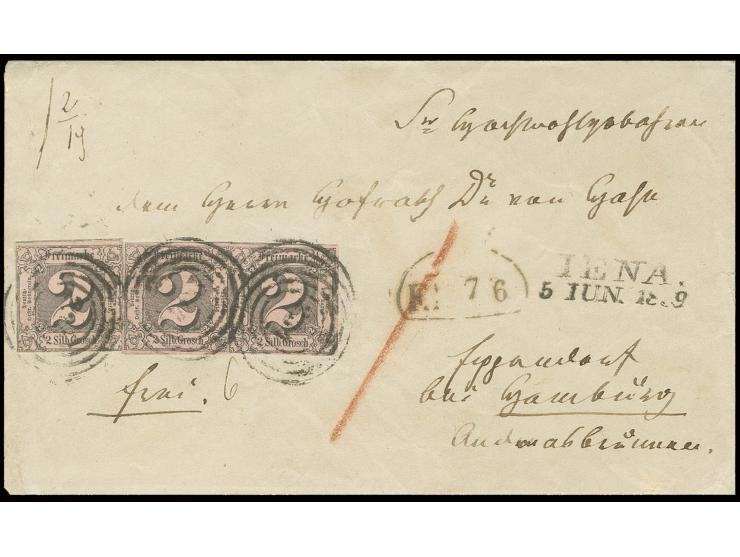 2/19
Sr Hochwohlgeboren
dem Herrn Hofrath Dr von
Freimarke Freimarke Freimarke
2 2 2
2 Silb. Grosch. 2 Silb. Grosch. 2 Silb. Grosch.
7 6
IENA.
5 IUN. 18 9
frei. 6
Eppendorf
bei Hamburg